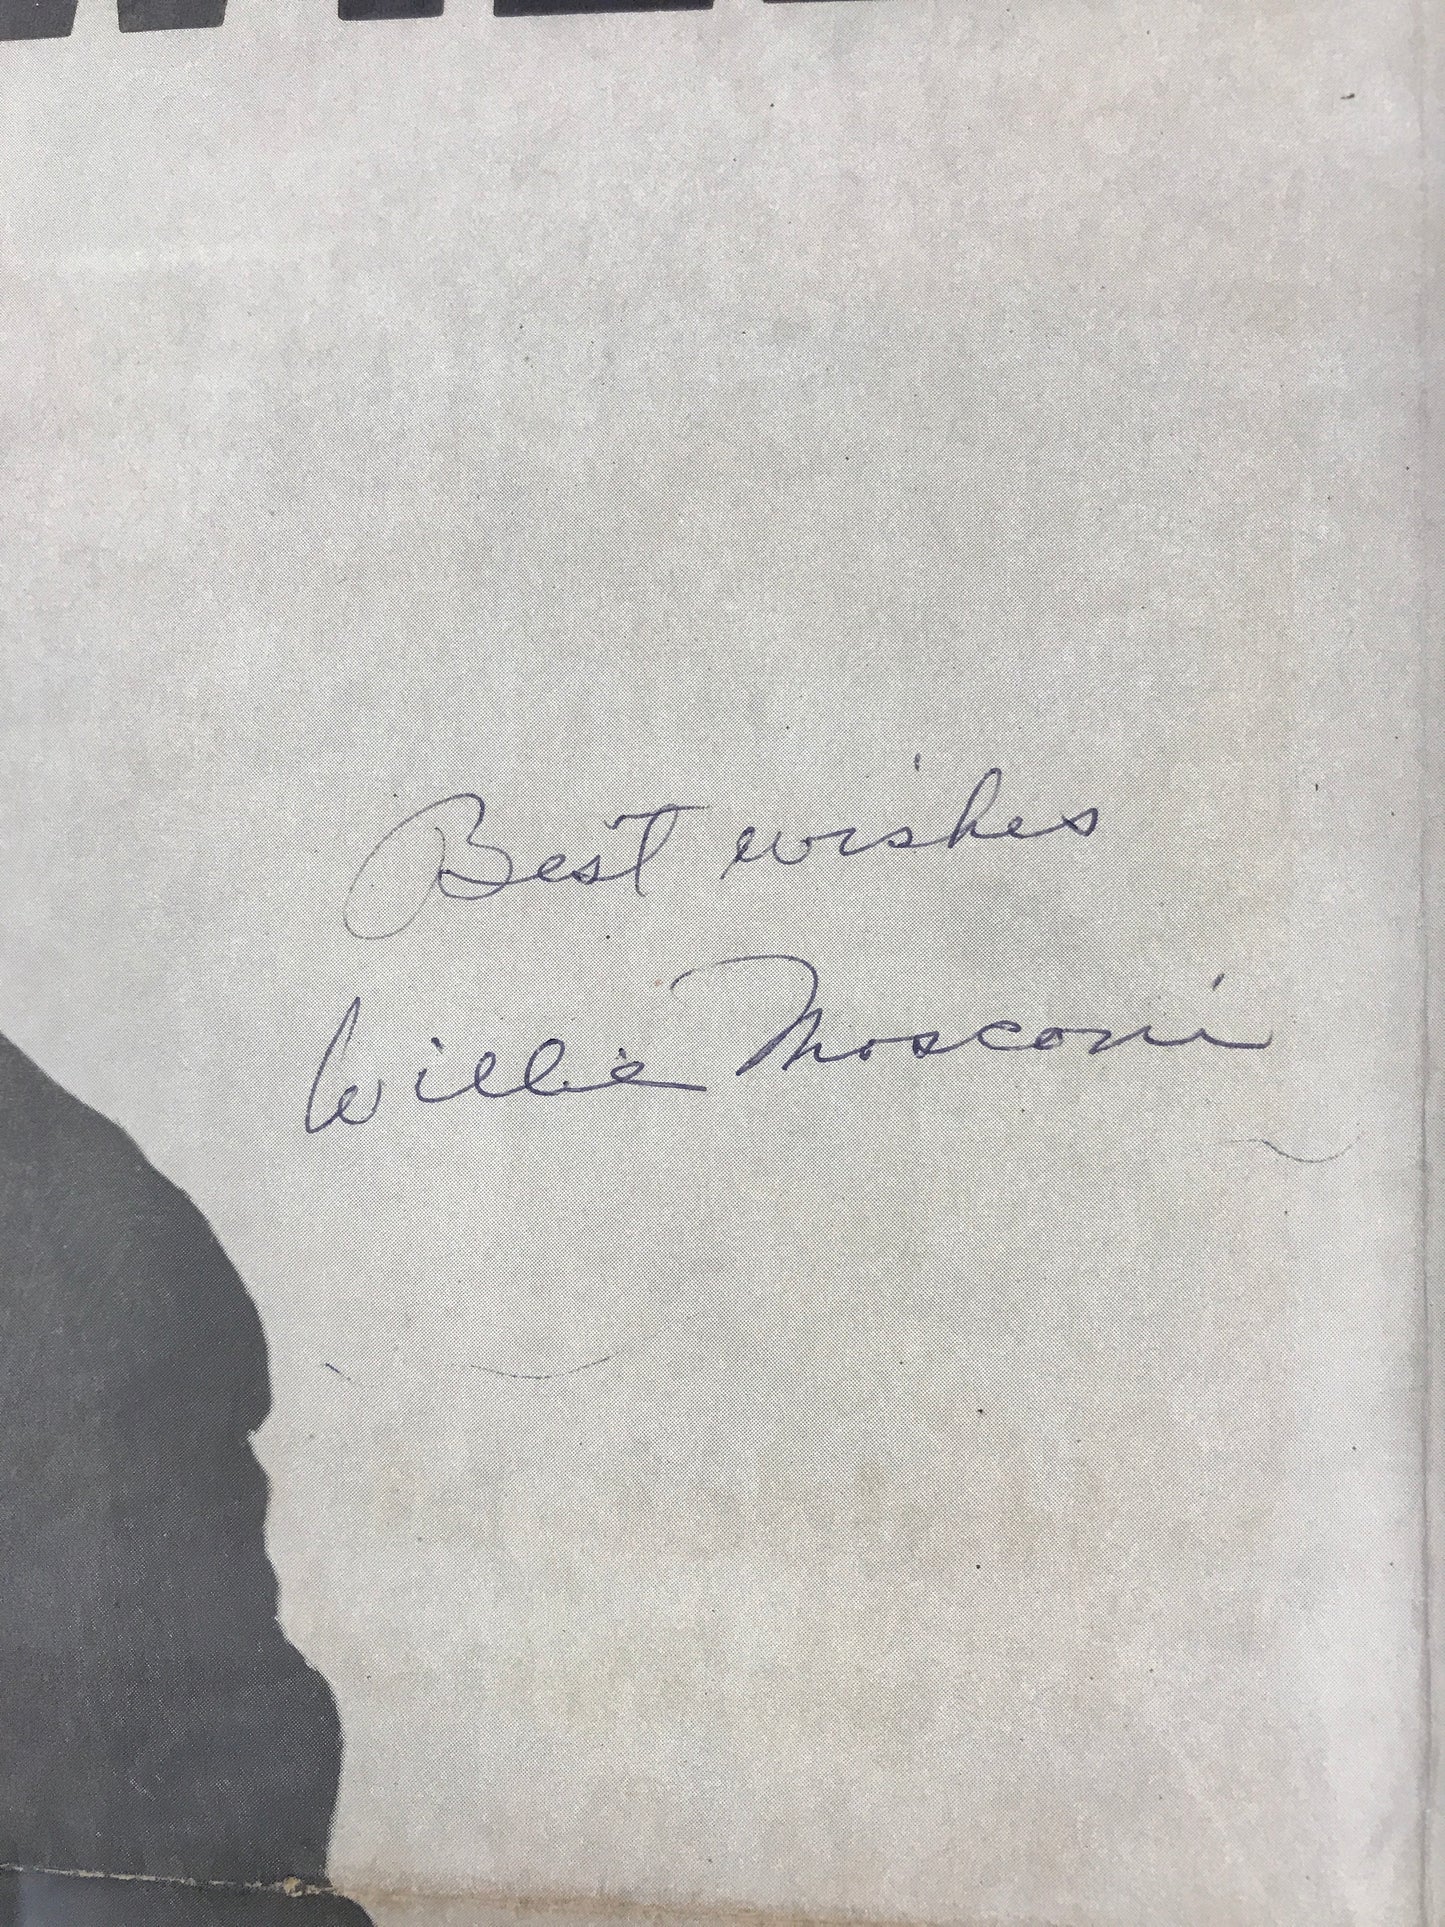 Best wishes
Willie Mosconi